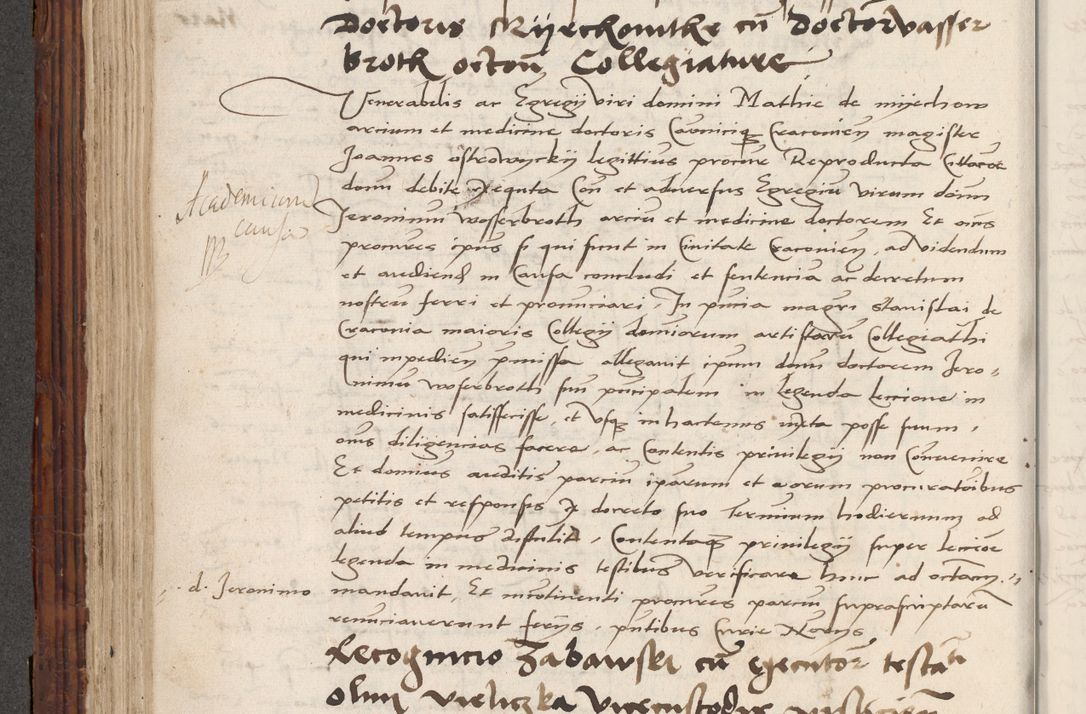 Doctoris Myechowithe cu Doctor vasser
broth octou Collegiature
Venerabilis ac Egregij viri domini Mathie de myechow
arcium et medicine doctoris Canoniciq Cracovien magister
Joannes ostrowyckij legittius procur Reproducta Cittacoe
donu debite exequta Con et adversus Egregiu virum dnum
Jeronimu woserbroth arciu et medicine doctorem Et oues
procures ipius si qui sunt in Civitate Cracovien, ad videndum
et audiend in Causa concludi et sentencia ac decretum
nostru ferri et pronunciari, In pncia magri Stanislai de
Cracovia maioris Collegij domiorum artistaru Collegiathi
qui impedien pmissa allegavit ipum dnum doctorem Jero-
nimu woserbroth suu pncipalem in legenda leccione in
medicinis satisfecisse, et usq in hacternus iuxta posse suum,
oues diligencias facere, ac Contentis privilegij non Convenire
Et dominus auditis parciu iparum et earum procuratoribus
petitis et responsis Ex decreto suo terminum hodiernum ad
aliud tempus distulit, Contentaq privilegij super leccioe
legenda in medicinis testibus verificare hinc ad octavam
d. Jeronimo
mandavit, Et incotinenti procures parciu suprascriptaru
renunciaverunt ferijs, pntibus Curie Notarijs
Academicum
causa
Recognicio Zabawski cu exequutor testati
olim vieliczka